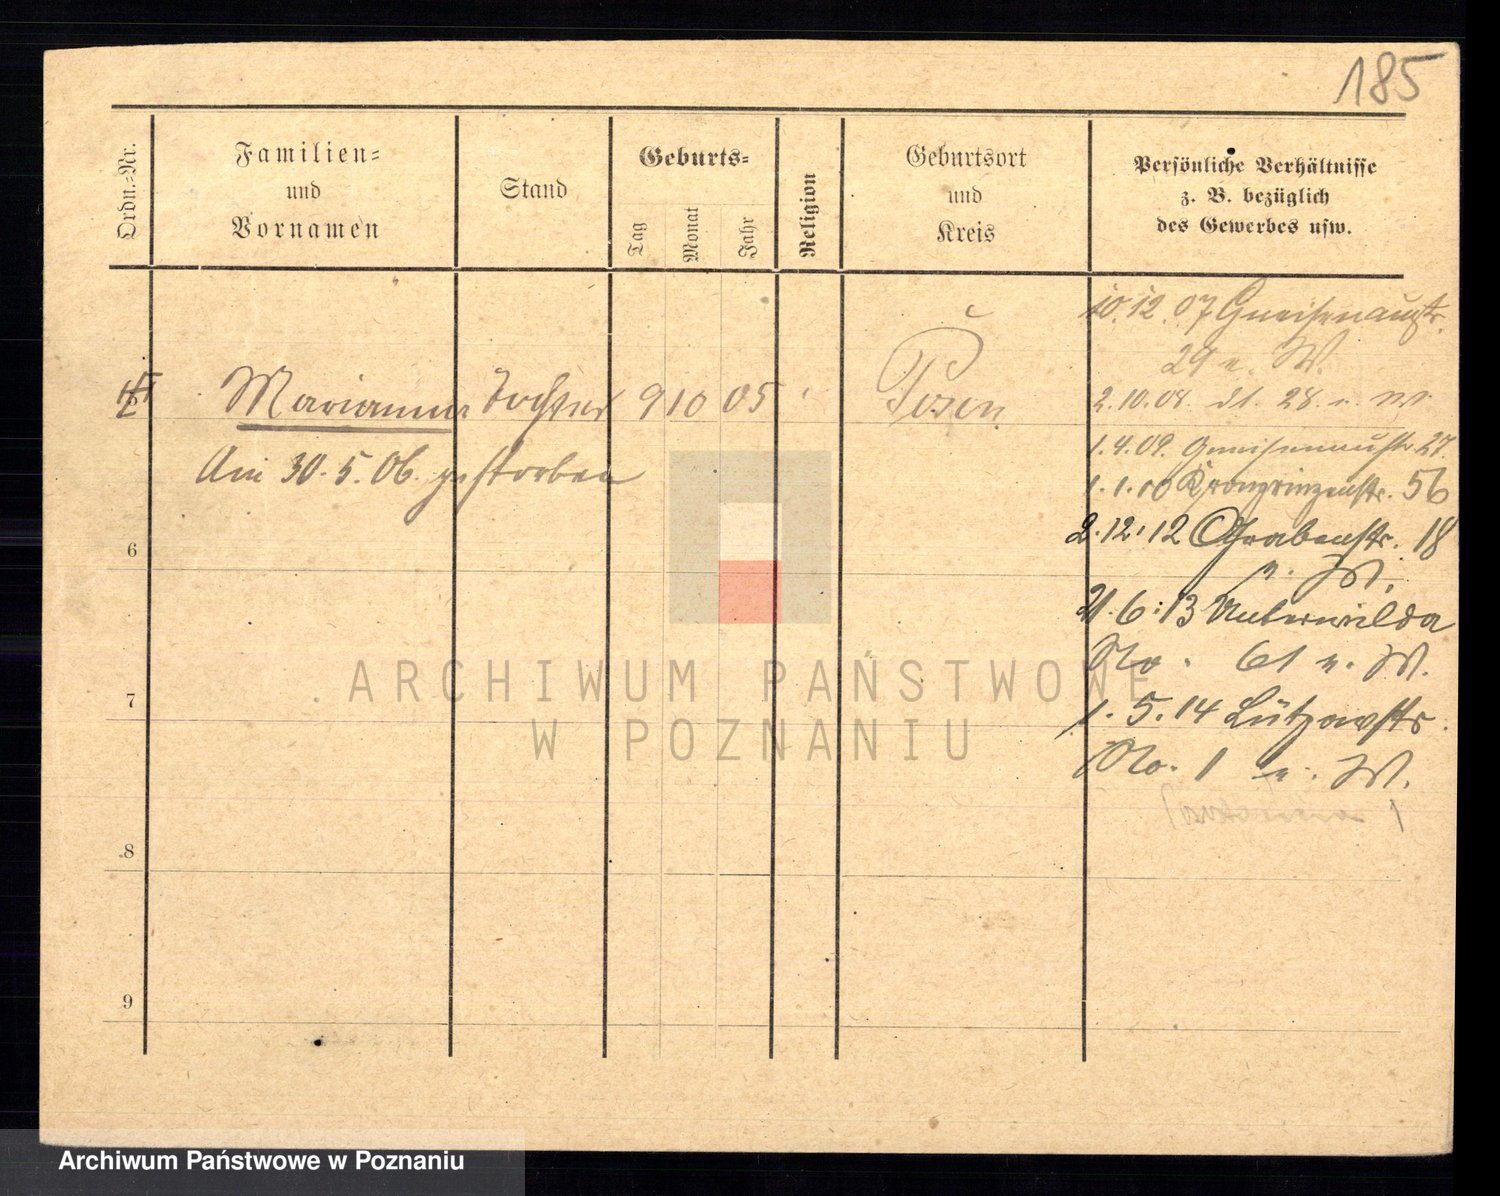 185
Ordn.=Nr.
Familien=
und
Vornamen
Stand
Geburts=
Tag
Monat
Jahr
Religion
Geburtsort
und
Kreis
Persönliche Verhältnisse
z. B. bezüglich
des Gewerbes usw.
Marianna Tochter 9 10 05 Posen
Am 30.5.06. gestorben
6
7
8
9
10.12.07 Gneisenaustr.
29 u. W.
2.10.08. dt. 28 u. W.
1.4.09. Gneisenaustr 27.
1.1.10 Kronprinzenstr. 56
2.12.12 Grabenstr. 18
u. W.
21.6.13 Unterwilda
No. 61 u. W.
1.5.14 Lützowstr.
No. 1 u. W.
ARCHIWUM PAŃSTWOWE
W POZNANIU
Archiwum Państwowe w Poznaniu